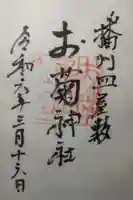 播州皿屋敷
お菊神社
令和六年三月十六日